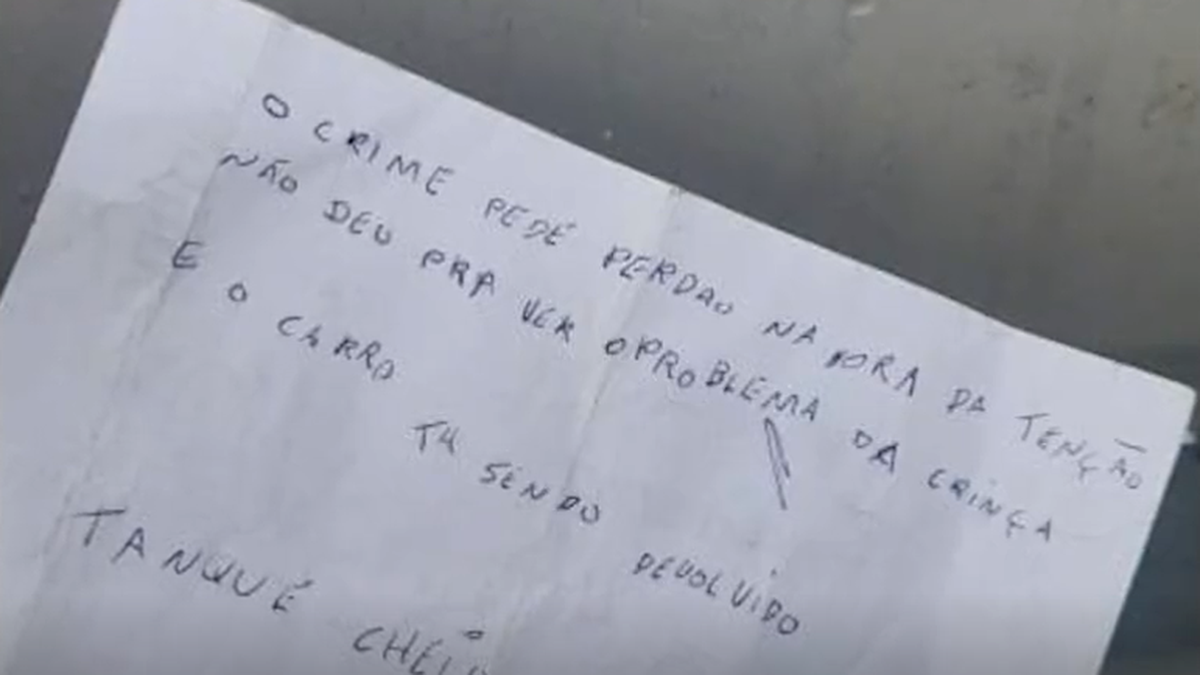 O CRIME PEDE PERDÃO NA HORA DA TENÇÃO
NÃO DEU PRA VER O PROBLEMA DA CRINÇA
E O CARRO TA SENDO DEVOLVIDO
TANQUE CHEIO